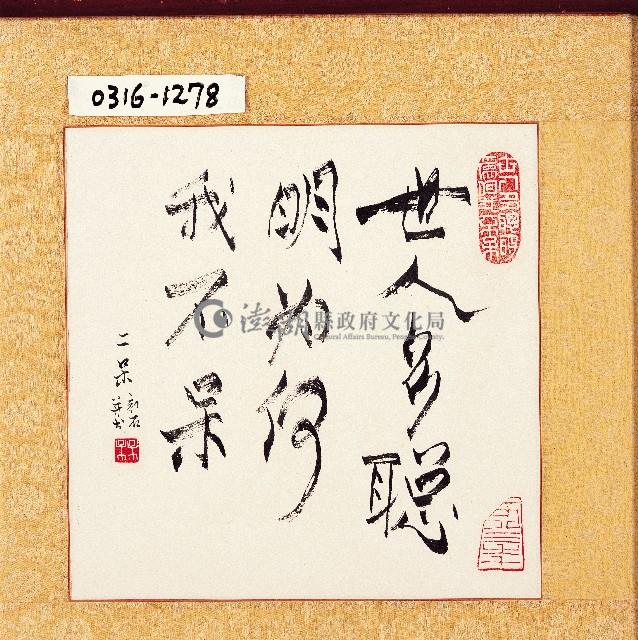 0316-1278
世人多聪
明为何
我不呆
二呆刻石
并书
澎湖縣政府文化局
Cultural Affairs Bureau, Penghu County.